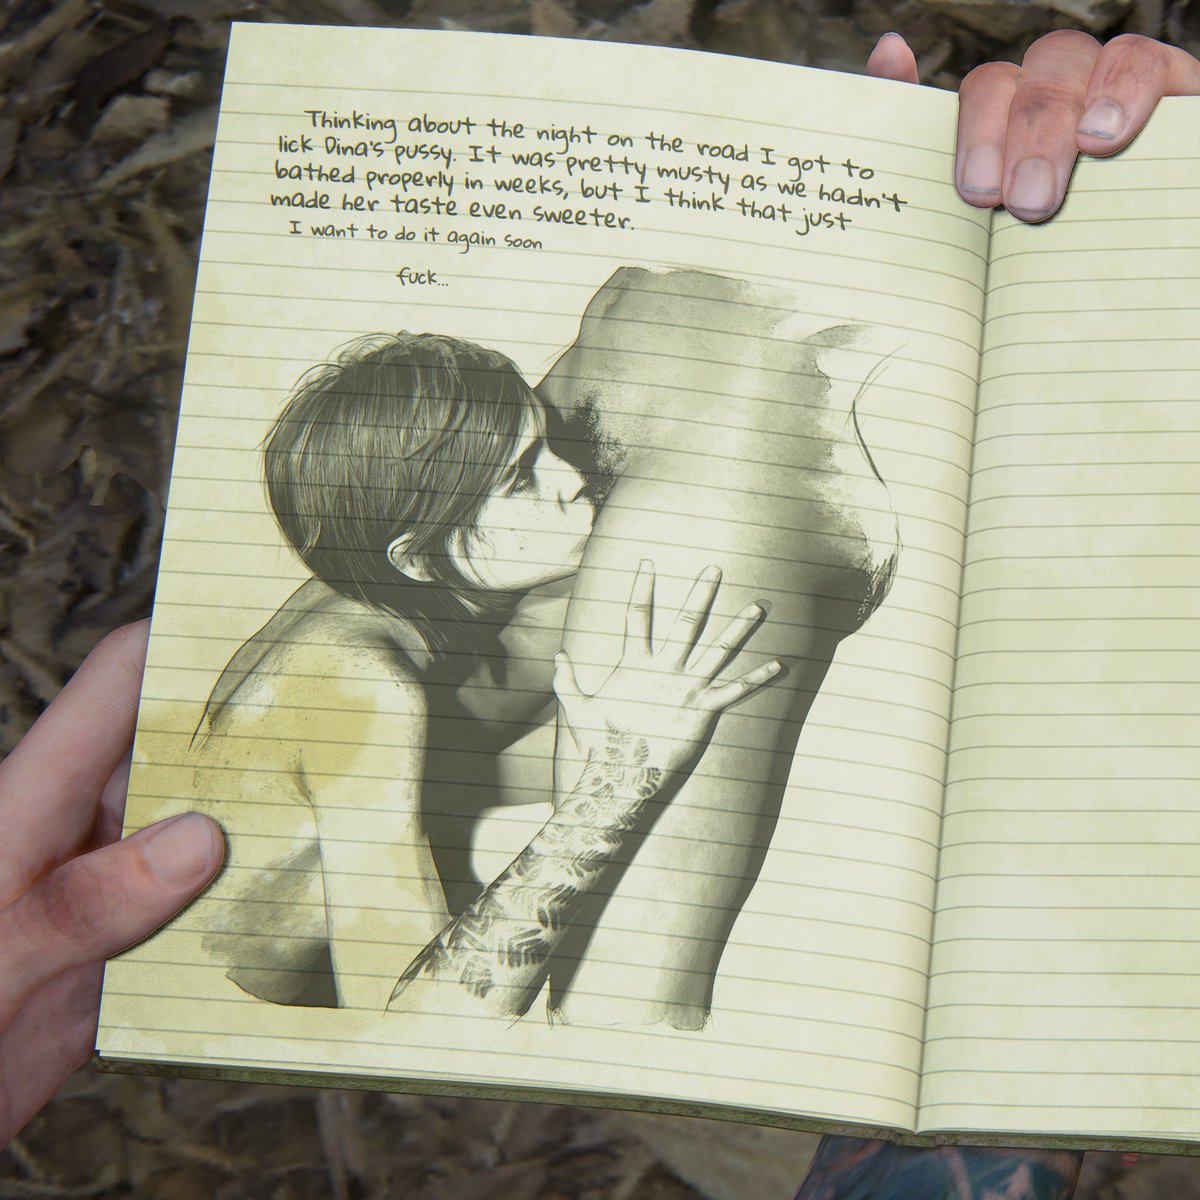 Thinking about the night on the road I got to
lick Dina's pussy. It was pretty musty as we hadn't
bathed properly in weeks, but I think that just
made her taste even sweeter.
I want to do it again soon
fuck...